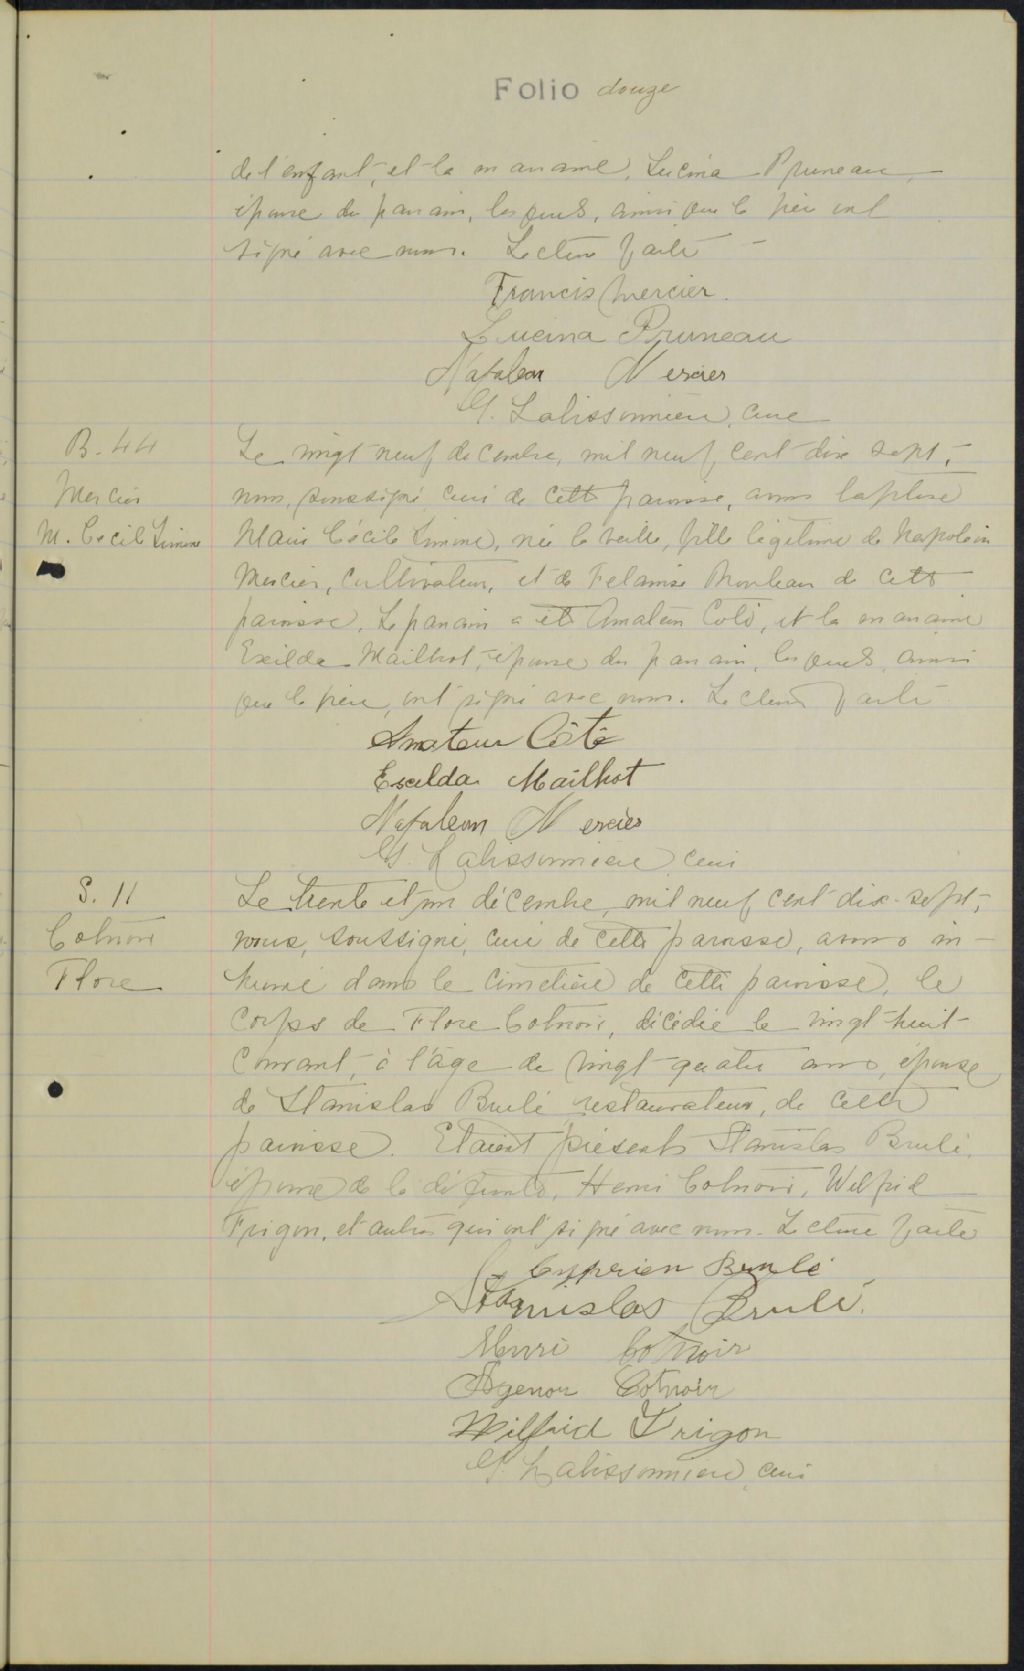 Folio douze
de l'enfant, et la marraine, Lucina Pruneau,
épouse du parrain, lesquels, ainsi que le père ont
signé avec nous. Lecture faite
Francis Mercier.
Lucina Pruneau
Napoleon Mercier
Lalissonnière, curé
B. 44
Le vingt neuf decembre, mil neuf cent dix sept,
Mercier
nous, soussigné curé de cette paroisse, avons baptisé
M. Cécile Simone
Marie Cécile Simone, née la veille, fille légitime de Napoléon
Mercier, cultivateur, et de de cette
paroisse. Le parrain a été Amateur Coté, et la marraine
Exilda Mailhot, épouse du parrain, lesquels, ainsi
que le père, ont signé avec nous. Lecture faite
Amateur Côté
Exilda Mailhot
Napoleon Mercier
Lalissonnière curé
S. 11
Le trente et un décembre, mil neuf cent dix-sept,
Cotnoir
nous, soussigné, curé de cette paroisse, avons in-
Flore
humé dans le cimetière de cette paroisse, le
corps de Flore Cotnoir, décédée le vingt-huit
courant, à l'âge de vingt-quatre ans, épouse
de Stanislas Brulé restaurateur, de cette
paroisse. Etaient présents Stanislas Brulé,
époux de la défunte, Henri Cotnoir, Wilfrid
Frigon, et autres qui ont signé avec nous. Lecture faite
Cyprien Brulé
Stanislas Brulé.
Henri Cotnoir
Agenor Cotnoir
Wilfrid Frigon
Lalissonnière, curé